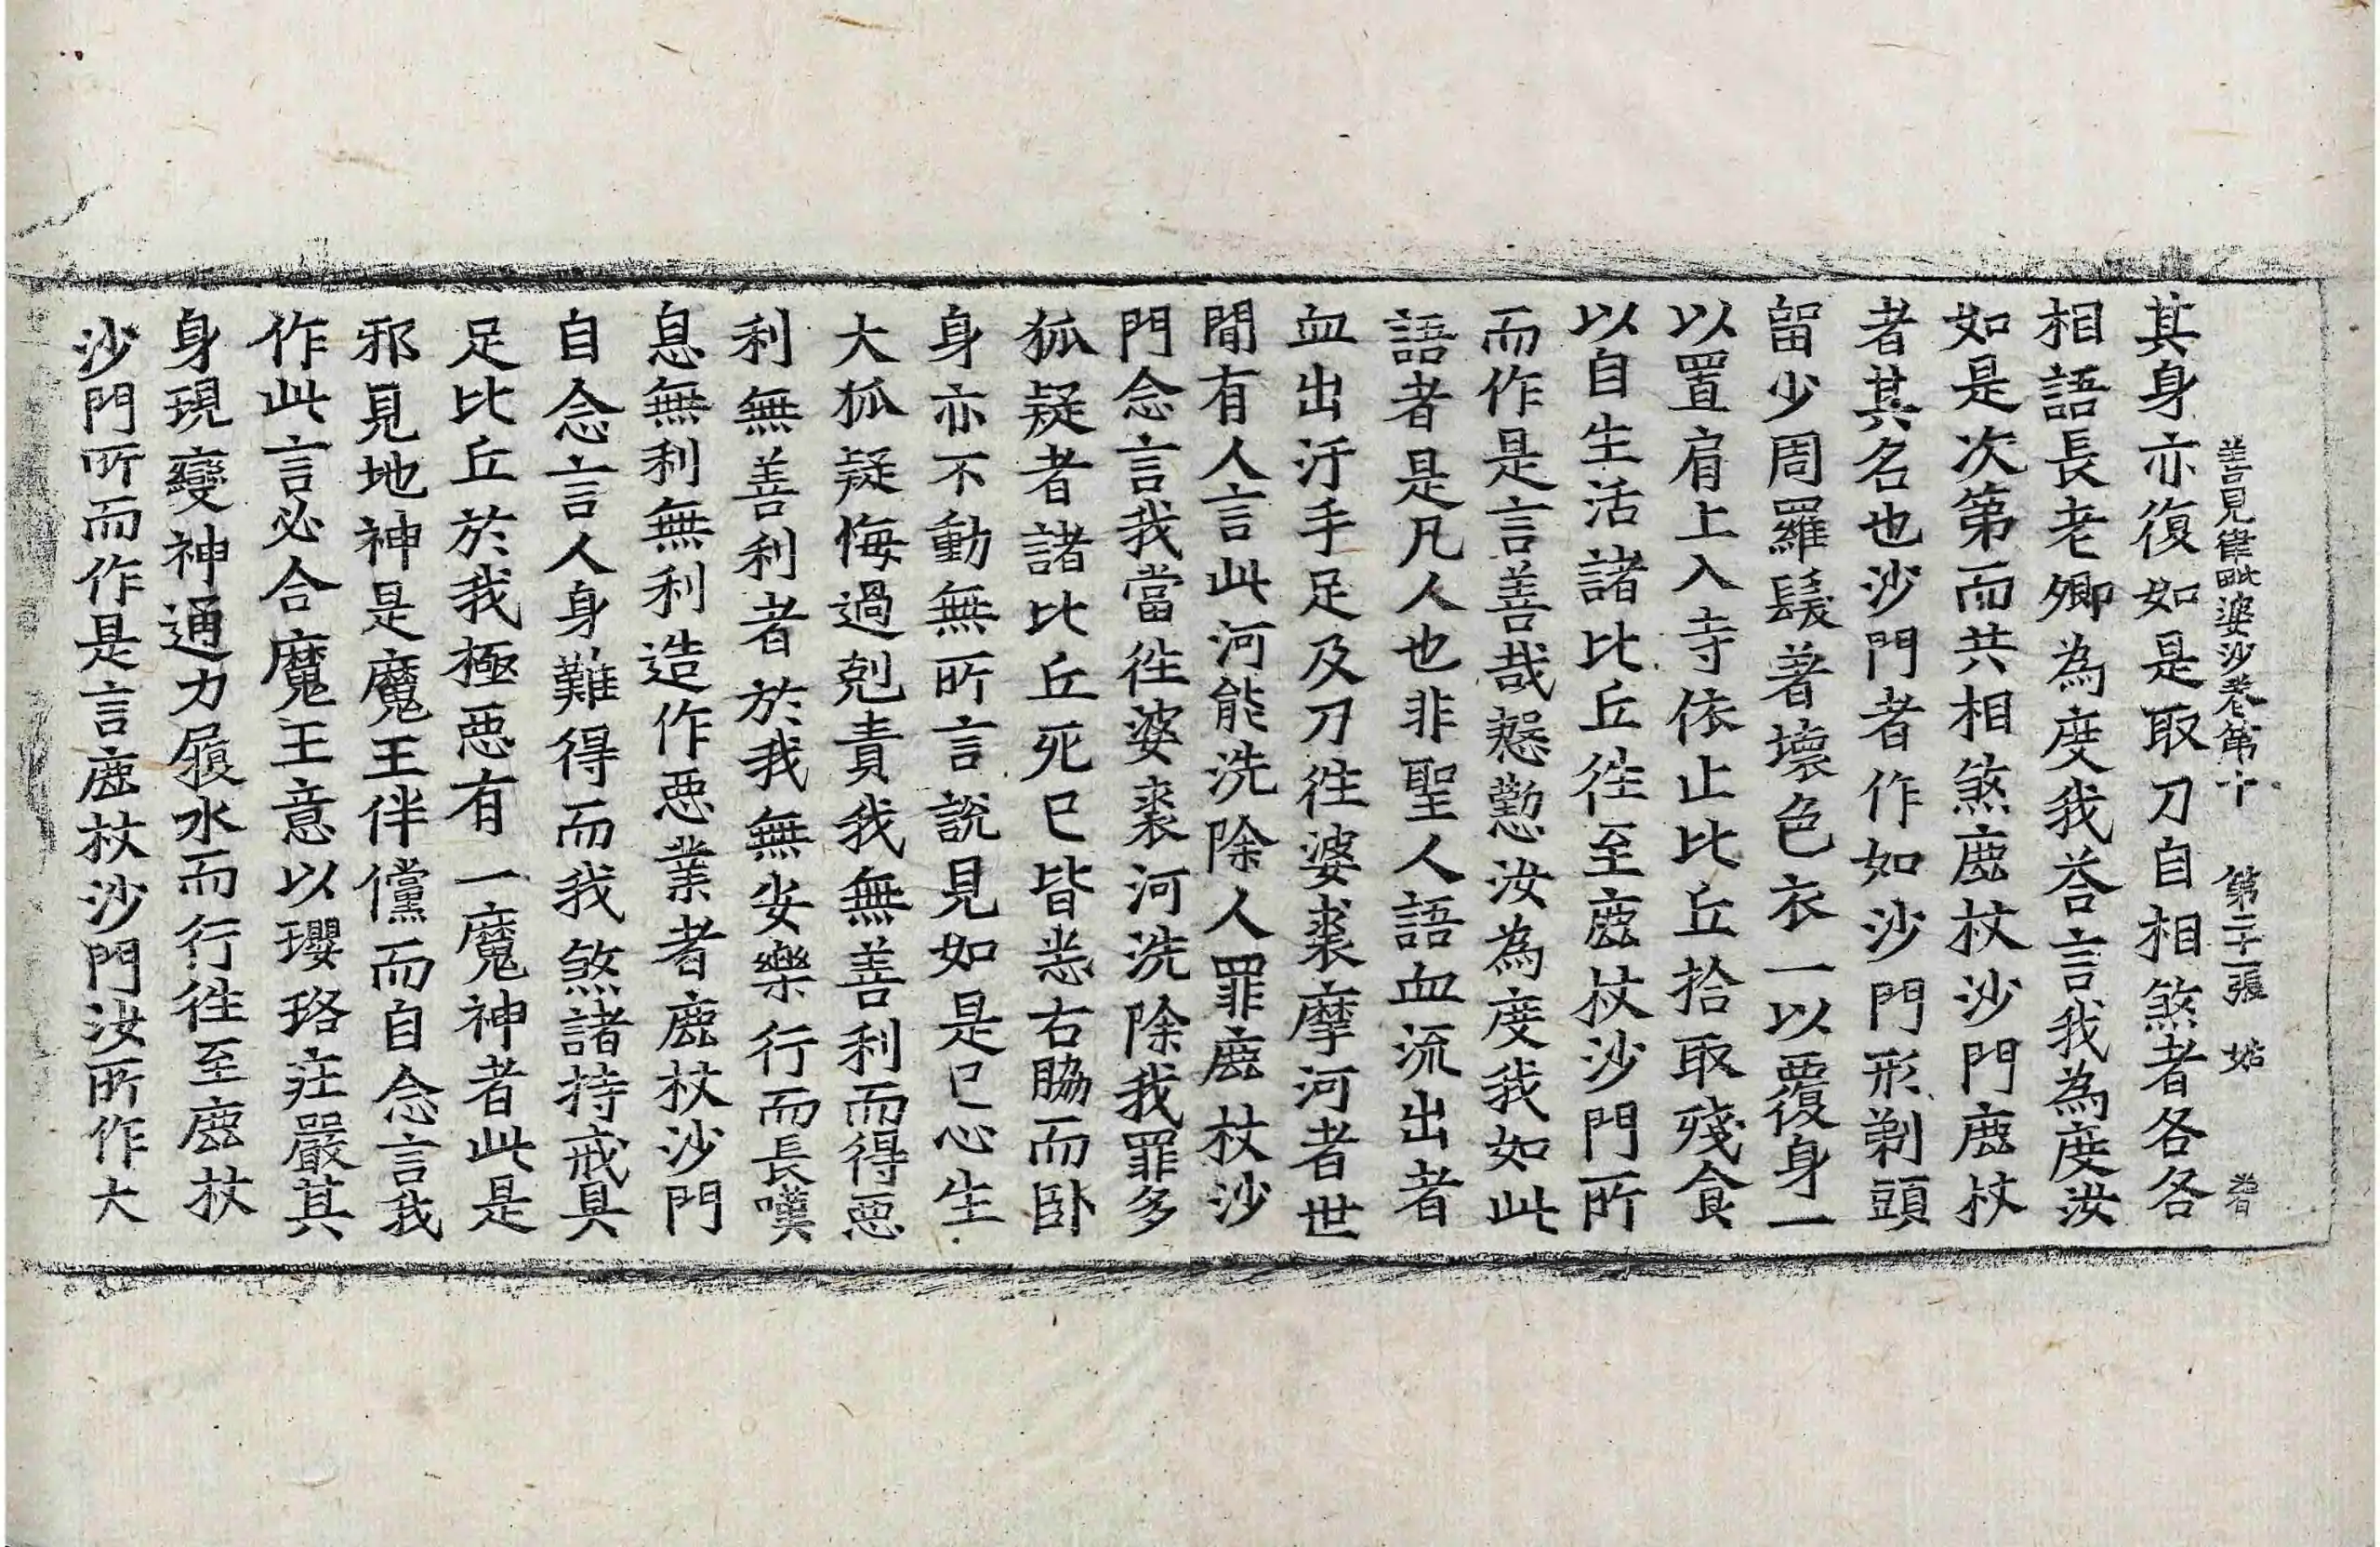 善見律毗婆沙卷第十 第二十一張 姑
其身亦復如是取刀自相煞者各各
相語長老卿為度我荅言我為度汝
如是次第而共相煞鹿杖沙門鹿杖
者其名也沙門者作如沙門形剃頭
留少周羅髮著壞色衣一以覆身一
以置肩上入寺依止比丘拾取殘食
以自生活諸比丘徃至鹿杖沙門所
而作是言善哉慇懃汝為度我如此
語者是凡人也非聖人語血流出者
血出汙手足及刀徃婆裘摩河者世
間有人言此河能洗除人罪鹿杖沙
門念言我當徃婆裘河洗除我罪多
狐疑者諸比丘死已皆悉右脇而卧
身亦不動無所言說見如是已心生
大狐疑悔過剋責我無善利而得惡
利無善利者於我無安樂行而長嘆
息無利無利造作惡業者鹿杖沙門
自念言人身難得而我煞諸持戒具
足比丘於我極惡有一魔神者此是
邪見地神是魔王伴儻而自念言我
作此言必合魔王意以瓔珞莊嚴其
身現變神通力履水而行徃至鹿杖
沙門所而作是言鹿杖沙門汝所作大